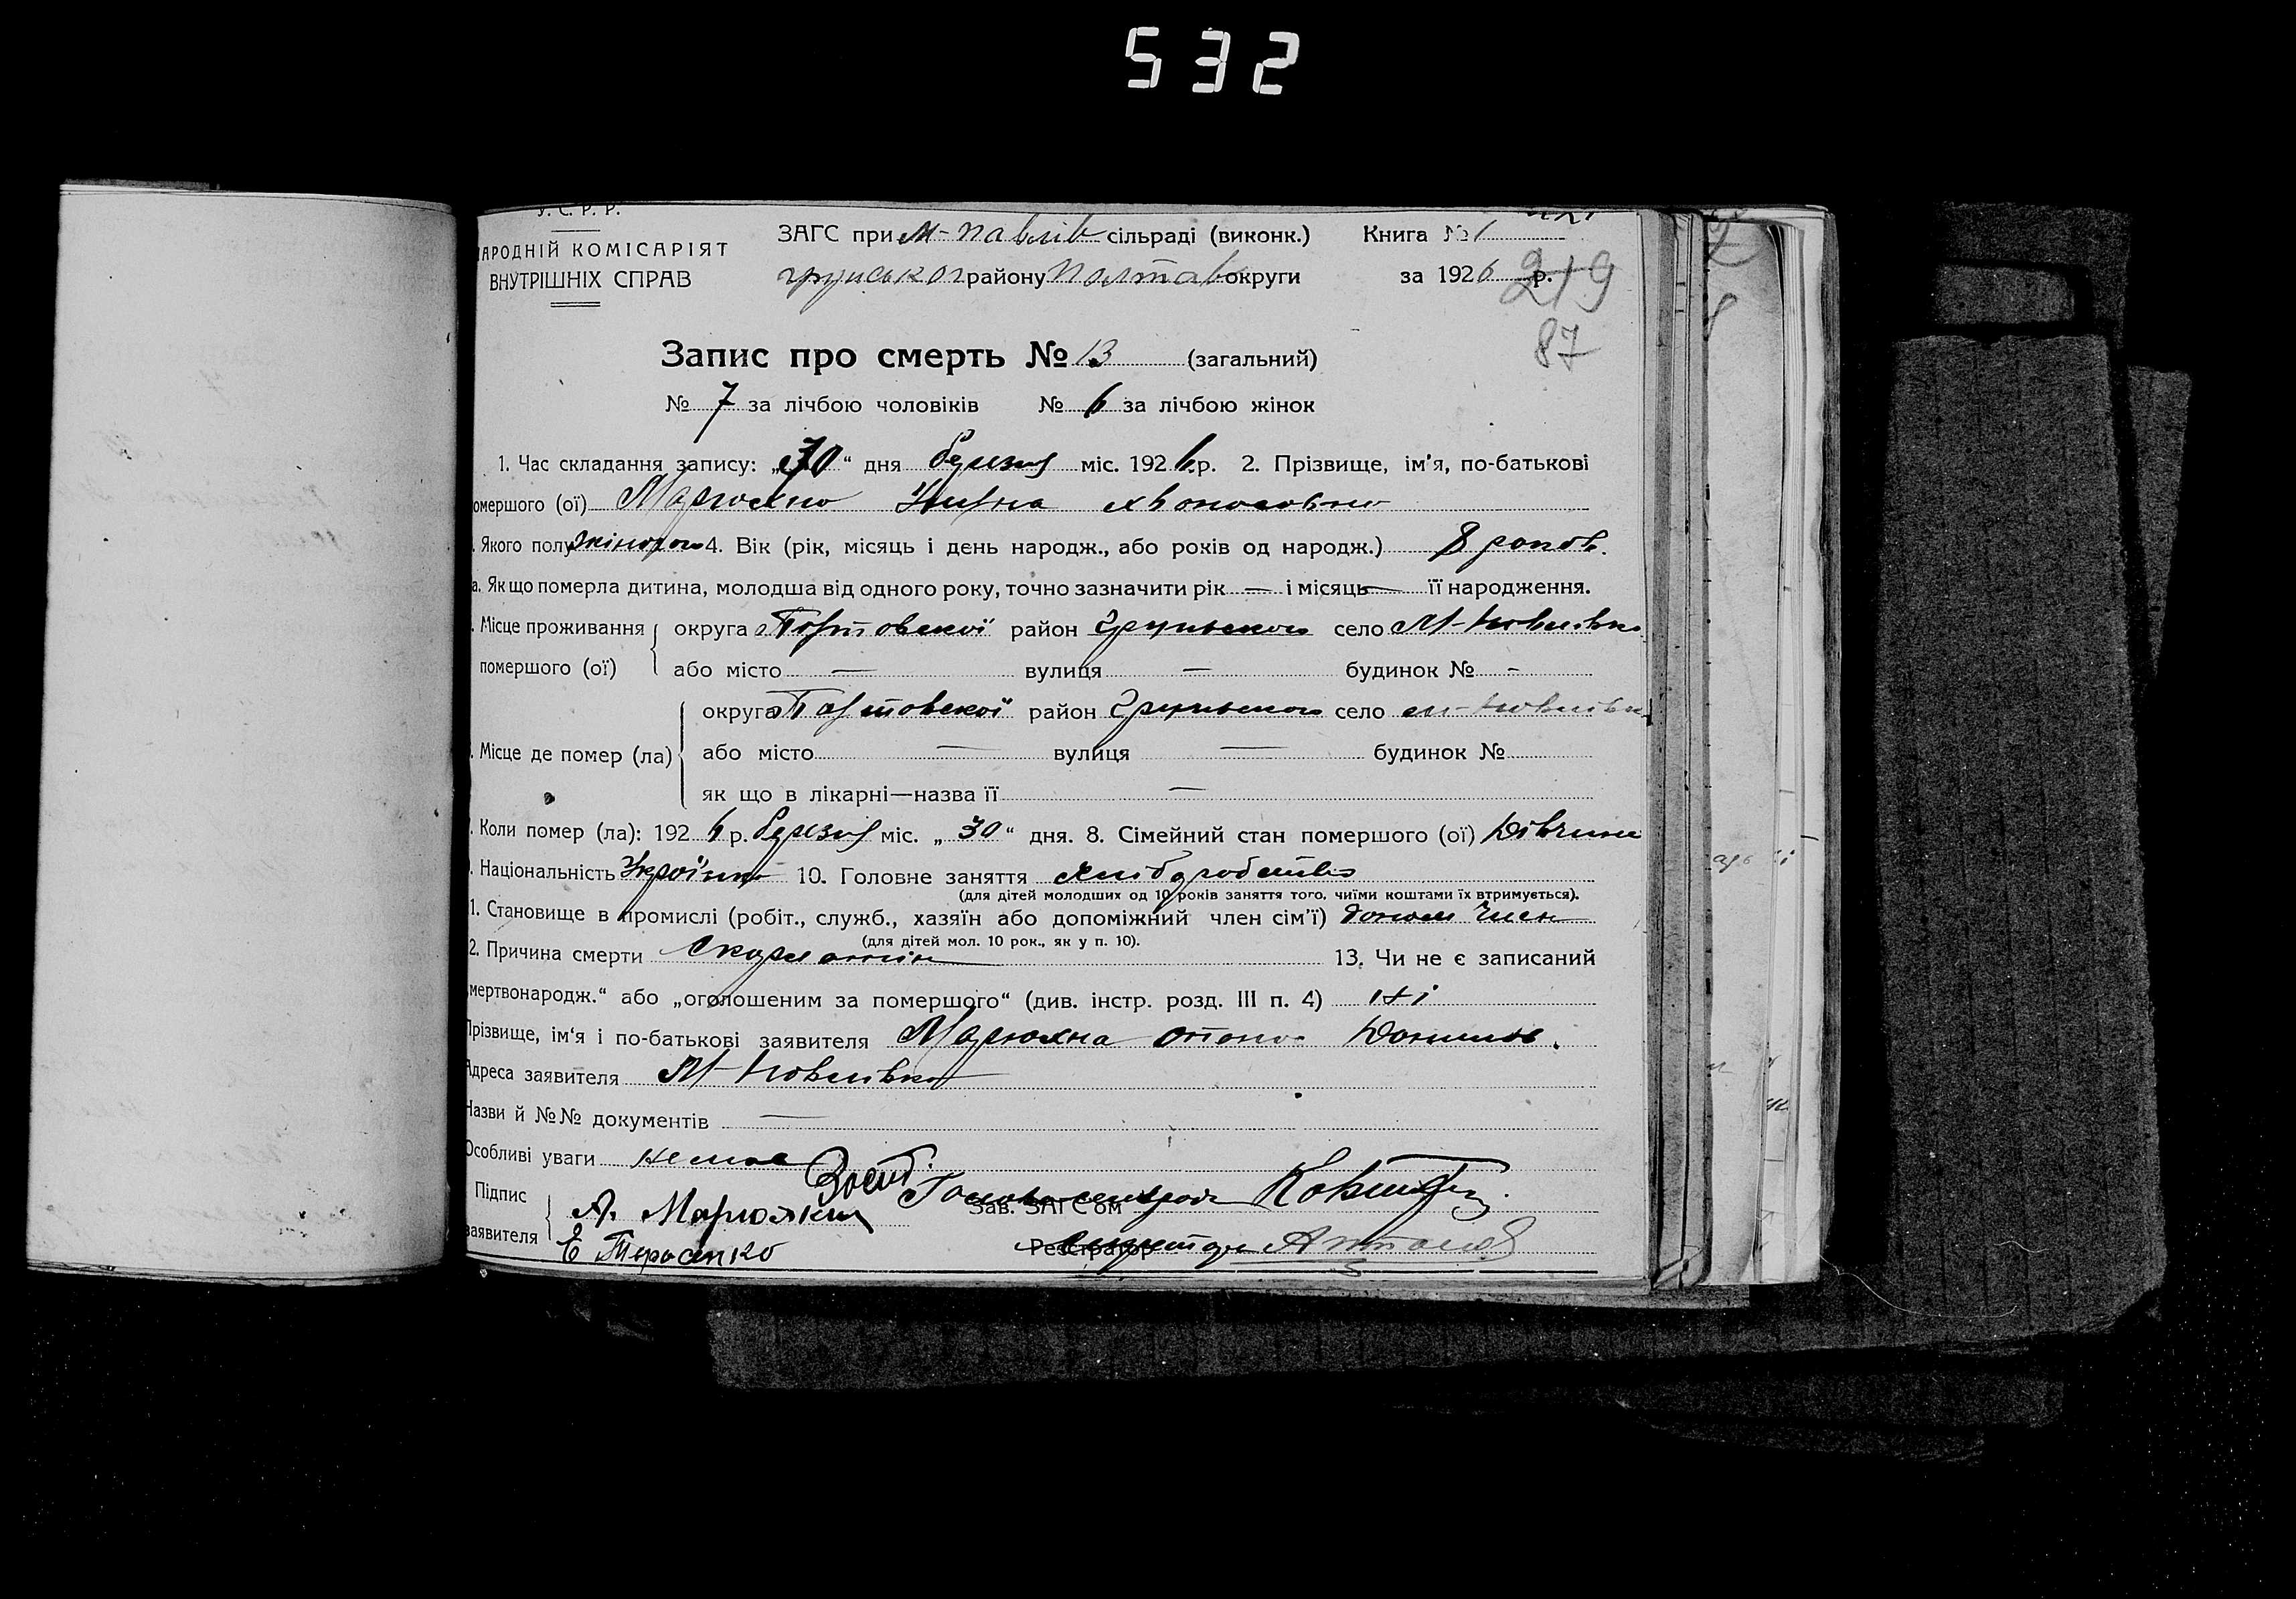 532
У. С. Р. Р.
НАРОДНІЙ КОМІСАРІЯТ
ВНУТРІШНІХ СПРАВ
ЗАГС при М-Павлів сільраді (виконк.) Книга № 1
грунськог району Полтав округи за 1926 р.
219
87
Запис про смерть № 13 (загальний)
№ 7 за лічбою чоловіків № 6 за лічбою жінок
1. Час складання запису: „30“ дня березня міс. 1926 р. 2. Прізвище, ім'я, по-батькові
помершого (ої) Марюхно
. Якого полу жіночого 4. Вік (рік, місяць і день народж., або років од народж.) 8 років.
а. Якщо померла дитина, молодша від одного року, точно зазначити рік — і місяць — її народження.
. Місце проживання помершого (ої) округа Полтовскої район Грунського село М-Повлівка
або місто — вулиця — будинок № -
. Місце де помер (ла) округа Полтовскої район Грунського село М-Повлівка
або місто — вулиця — будинок №
як що в лікарні—назва її —
. Коли помер (ла): 1926 р. березня міс. „30“ дня. 8. Сімейний стан помершого (ої) Дівчина
. Національність Українка 10. Головне заняття хліборобство
(для дітей молодших од 10 років заняття того, чиїми коштами їх втримується).
1. Становище в промислі (робіт., служб., хазяїн або допоміжний член сім'ї) допом член
(для дітей мол. 10 рок., як у п. 10).
2. Причина смерти Скарлатін 13. Чи не є записаний
мертвонародж.“ або „оголошеним за помершого“ (див. інстр. розд. III п. 4) Ні
Прізвище, ім'я і по-батькові заявителя Марюхна
Адреса заявителя М-Повлівка
Назви й №№ документів —
Особливі уваги немає
Підпис заявителя А. Марюхна
Є Тарасенко
Зав. ЗАГС'ом Голова сельради
Реєстратор Секретарь